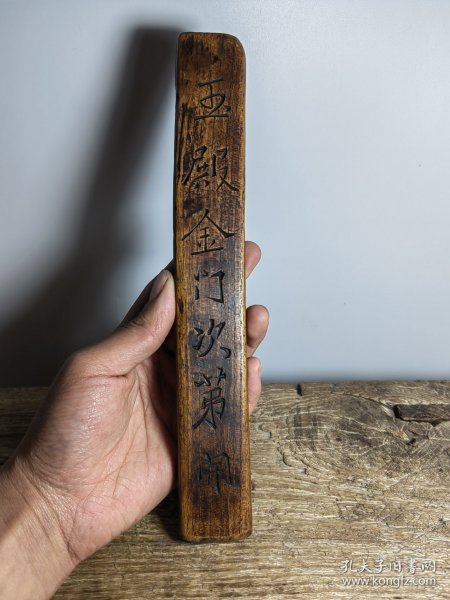 玉殿金门次第開
孔夫子旧书网
www.kongfz.com